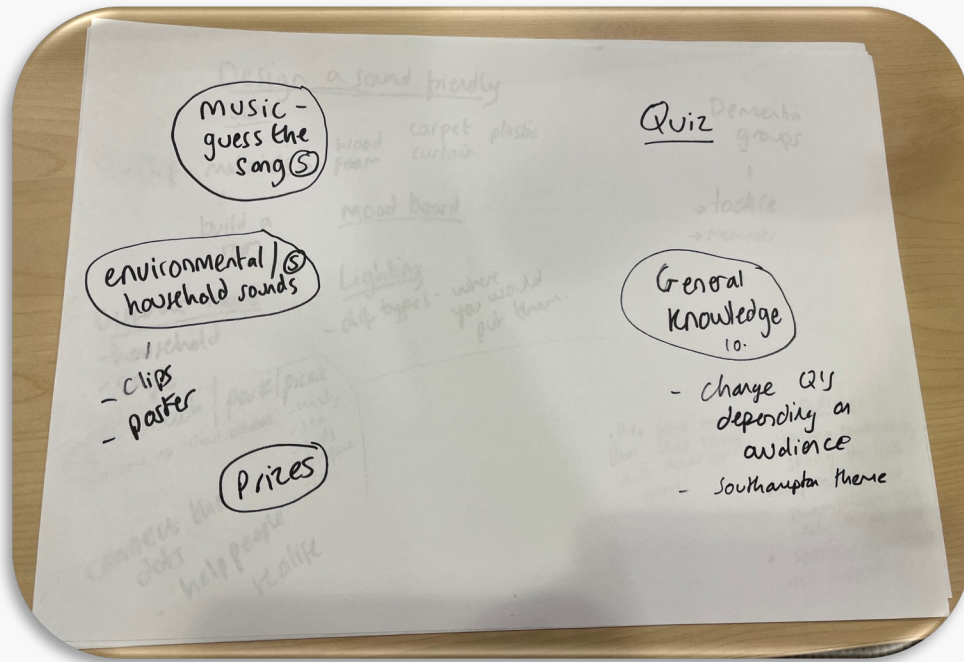 Music -
guess the
song 5
Quiz
environmental / 5
household sounds
- clips
- poster
Prizes
General
Knowledge
10.
- change Q's
depending on
audience
- Southampton theme
Design a sound friendly
wood carpet plastic
foam curtain
build a
Mood board
Lighting
- diff types - where
you would
put them.
- household
Dementia
groups
→ tactile
connect the
dots
help people
realise